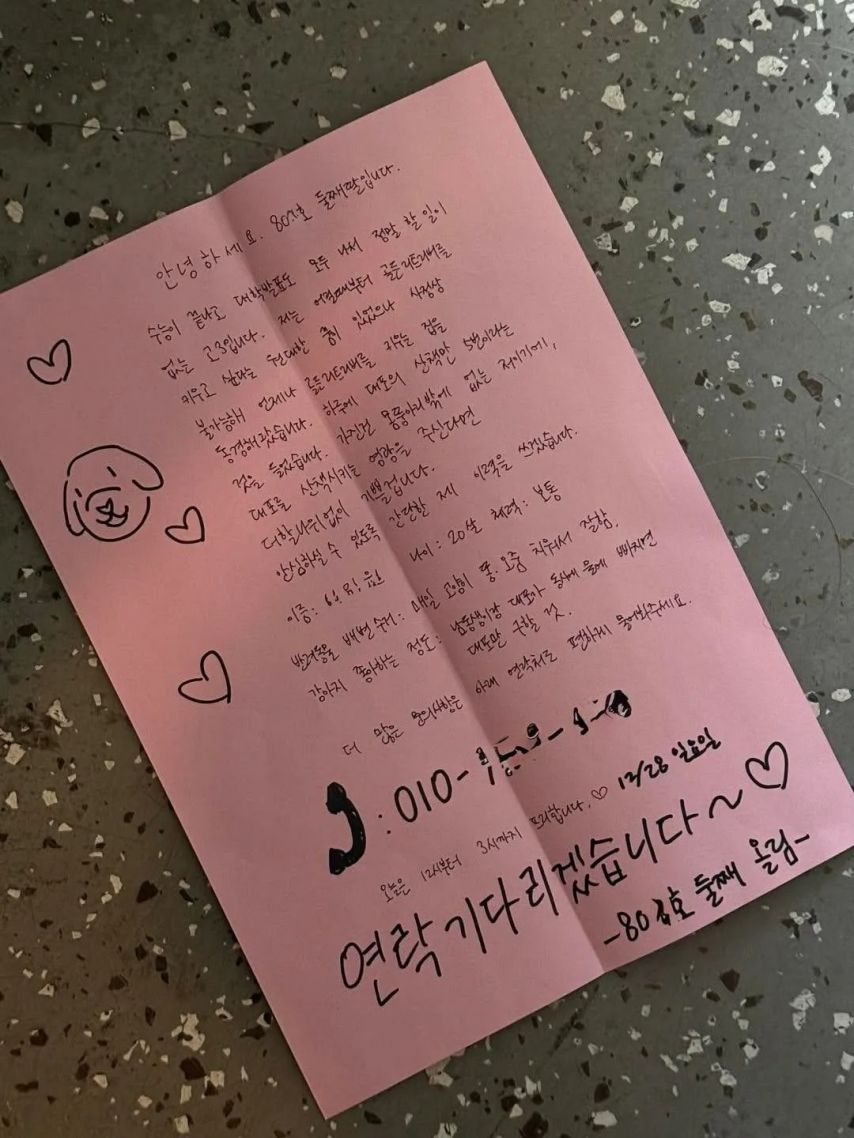 안녕하세요. 801호 둘째딸입니다.
수능이 끝나고 대학발표도 모두 나서 정말 할 일이
없는 고3입니다. 저는 어릴때부터 골든리트리버를
키우고 싶다는 원대한 꿈이 있었으나 사정상
불가능해 언제나 골든리트리버를 키우는 집을
동경해왔습니다. 하루에 대포의 산책만 5번이라는
것을 들었습니다. 가진건 몸뚱아리밖에 없는 저이기에,
대포를 산책시키는 영광을 주신다면
더할나위없이 기쁠겁니다.
안심하실 수 있도록 간단한 제 이력을 쓰겠습니다.
이름: 나이: 20살 체력: 보통
반려동물 배변 수거: 매일 고양이 똥.오줌 치워서 잘함.
강아지 좋아하는 정도: 남동생이랑 대포가 동시에 물에 빠지면
대포만 구할 것.
더 많은 문의사항은 아래 연락처로 편하게 물어봐주세요.
: 010-
오늘은 12시부터 3시까지 프리합니다.♡ 12/28 일요일
연락 기다리겠습니다~♡
-801호 둘째 올림-